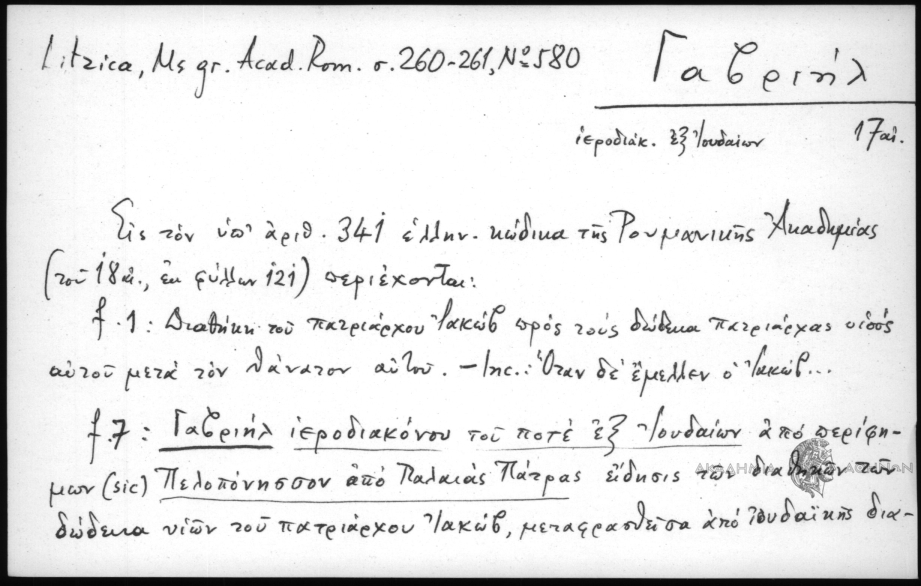 Litzica, Ms gr. Acad. Rom. σ. 260-261, Nº 580
Γαβριήλ
ἱεροδιάκ. ἐξ Ἰουδαίων 17 αἰ.
Εἰς τὸν ὑπ' ἀριθ. 341 ἑλλην. κώδικα τῆς Ρουμανικῆς Ἀκαδημίας
(τοῦ 18 αἰ., ἐκ φύλλων 121) περιέχονται:
f. 1 : Διαθήκη τοῦ πατριάρχου Ἰακὼβ πρὸς τοὺς δώδεκα πατριάρχας υἱοὺς
αὐτοῦ μετὰ τὸν θάνατον αὐτοῦ. – Inc.: Ὅταν δὲ ἔμελλεν ὁ Ἰακὼβ...
f. 7 : Γαβριὴλ ἱεροδιακόνου τοῦ ποτὲ ἐξ Ἰουδαίων ἀπὸ περίφη-
μων (sic) Πελοπόνησσον ἀπὸ Παλαιὰς Πάτρας εἴδησις τῶν διαθηκῶν τῶν
δώδεκα υἱῶν τοῦ πατριάρχου Ἰακώβ, μεταφρασθεῖσα ἀπὸ Ἰουδαϊκῆς δια-
ΑΚΑΔΗΜΙΑ ΑΘΗΝΩΝ